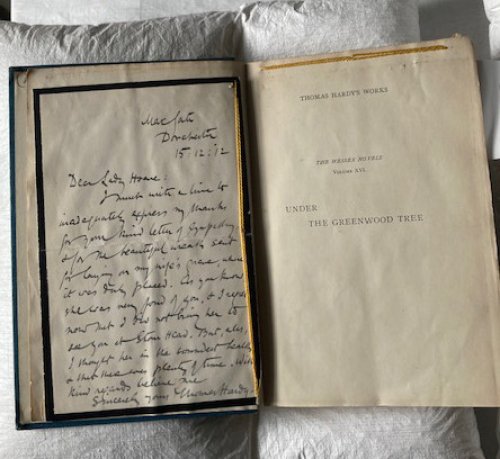 Max Gate
Dorchester
15-12-12
Dear Lady Hoare:
I must write a line to
inadequately express my thanks
for your kind letter of sympathy,
& for the beautiful wreath sent
for laying on my wife's grave, where
it was duly placed. As you know
she was very fond of you, & I regret
now that I did not bring her to
see you at Stourhead. But, alas,
I thought her in the soundest health
& that there was plenty of time. With
kind regards believe me
Sincerely yours Thomas Hardy
THOMAS HARDY'S WORKS
THE WESSEX NOVELS
VOLUME XVI.
UNDER
THE GREENWOOD TREE